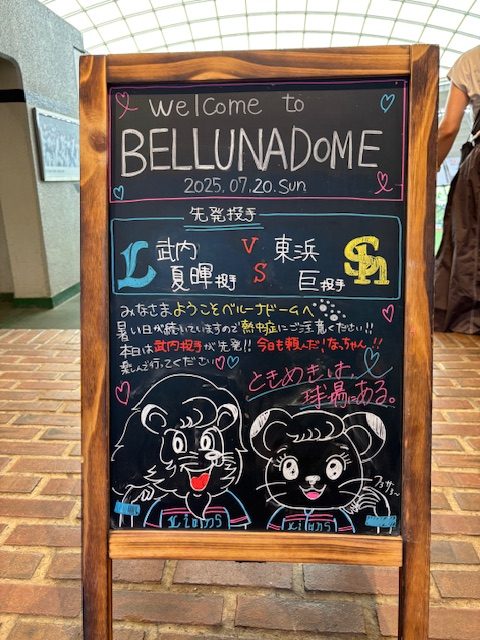 Welcome to
BELLUNADOME
2025.07.20.Sun
先発投手
L 武内 VS 東浜 Sh
夏暉投手 巨投手
みなさま ようこそベルーナドームへ
暑い日が続いていますので熱中症にご注意ください!!
本日は武内投手が先発!! 今日も頼んだ!なっちゃん!!
楽しんで行ってください♡
ときめきは、
球場にある。
Lions
Lions